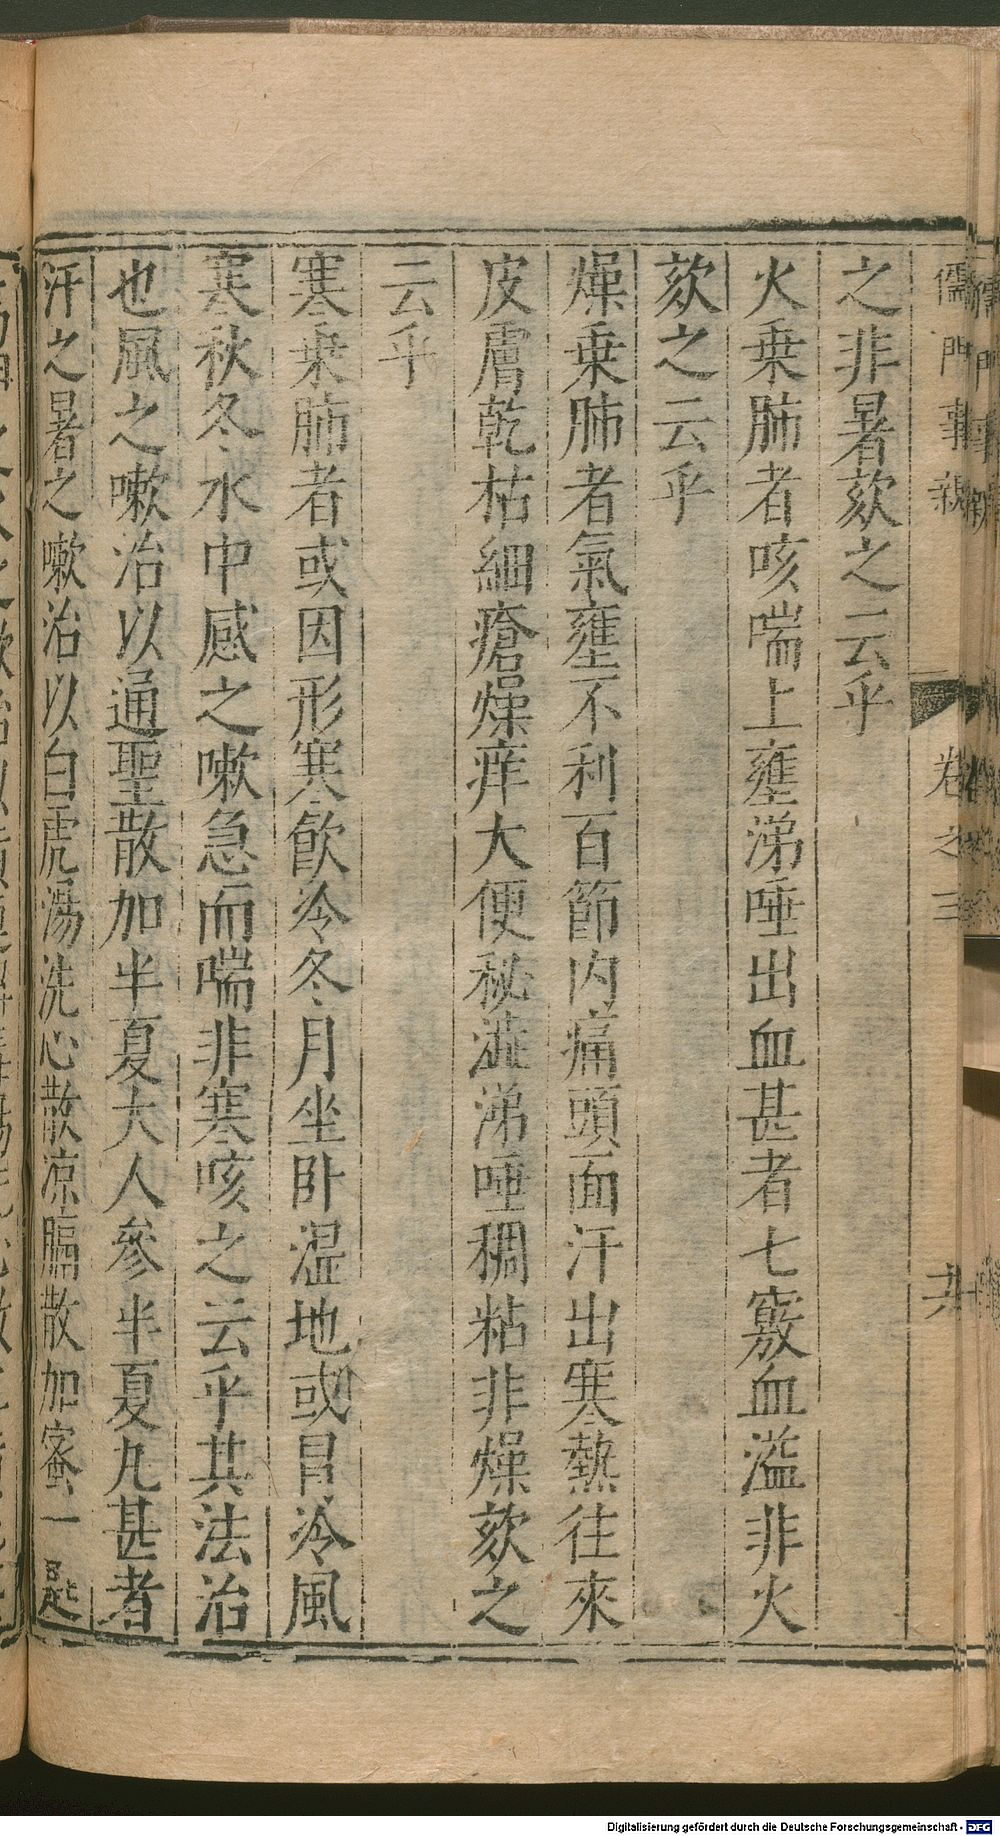 儒門事親 卷之三 六
之非暑欬之云乎
火乗肺者咳喘上壅涕唾出血甚者七竅血溢非火
欬之云乎
燥乗肺者氣壅不利百節内痛頭面汗出寒熱往來
皮膚乾枯細瘡燥痒大便秘澁涕唾稠粘非燥欬之
云乎
寒乗肺者或因形寒飲冷冬月坐卧湿地或冒冷風
寒秋冬水中感之嗽急而喘非寒咳之云乎其法治
也風之嗽治以通聖散加半夏大人參半夏丸甚者
汗之暑之嗽治以白虎湯洗心散凉膈散加蜜一匙
Digitalisierung gefördert durch die Deutsche Forschungsgemeinschaft - DFG